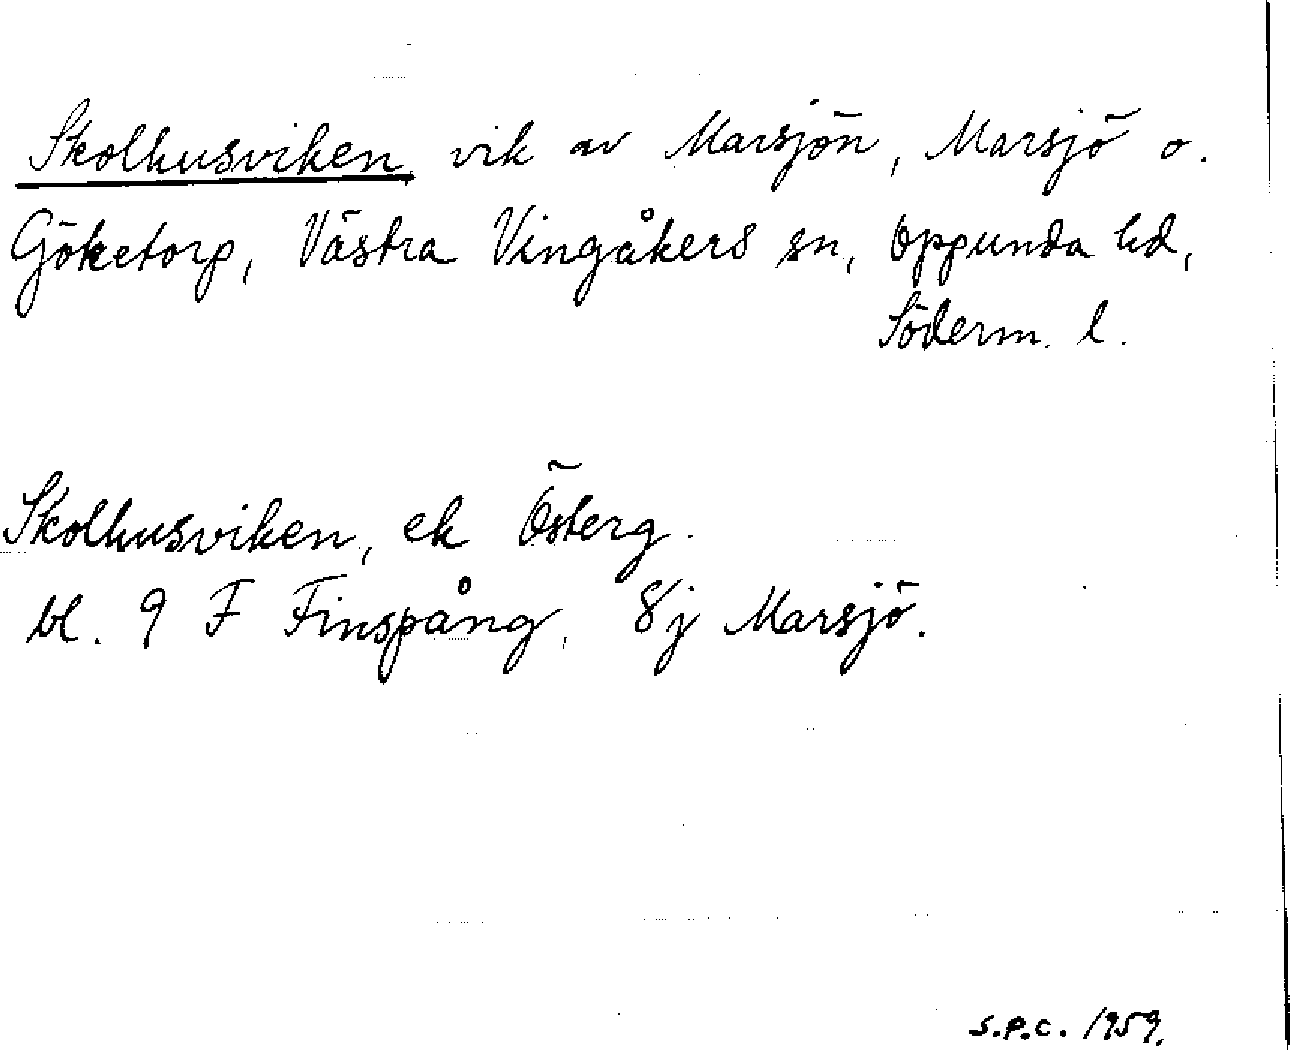 Skolhusviken, vik av Marsjön, Marsjö o.
Göketorp, Västra Vingåkers sn, Oppunda hd,
Söderm. l.
Skolhusviken, ek Österg.
bl. 9 F Finspång, 8j Marsjö.
S.P.C. 1959.